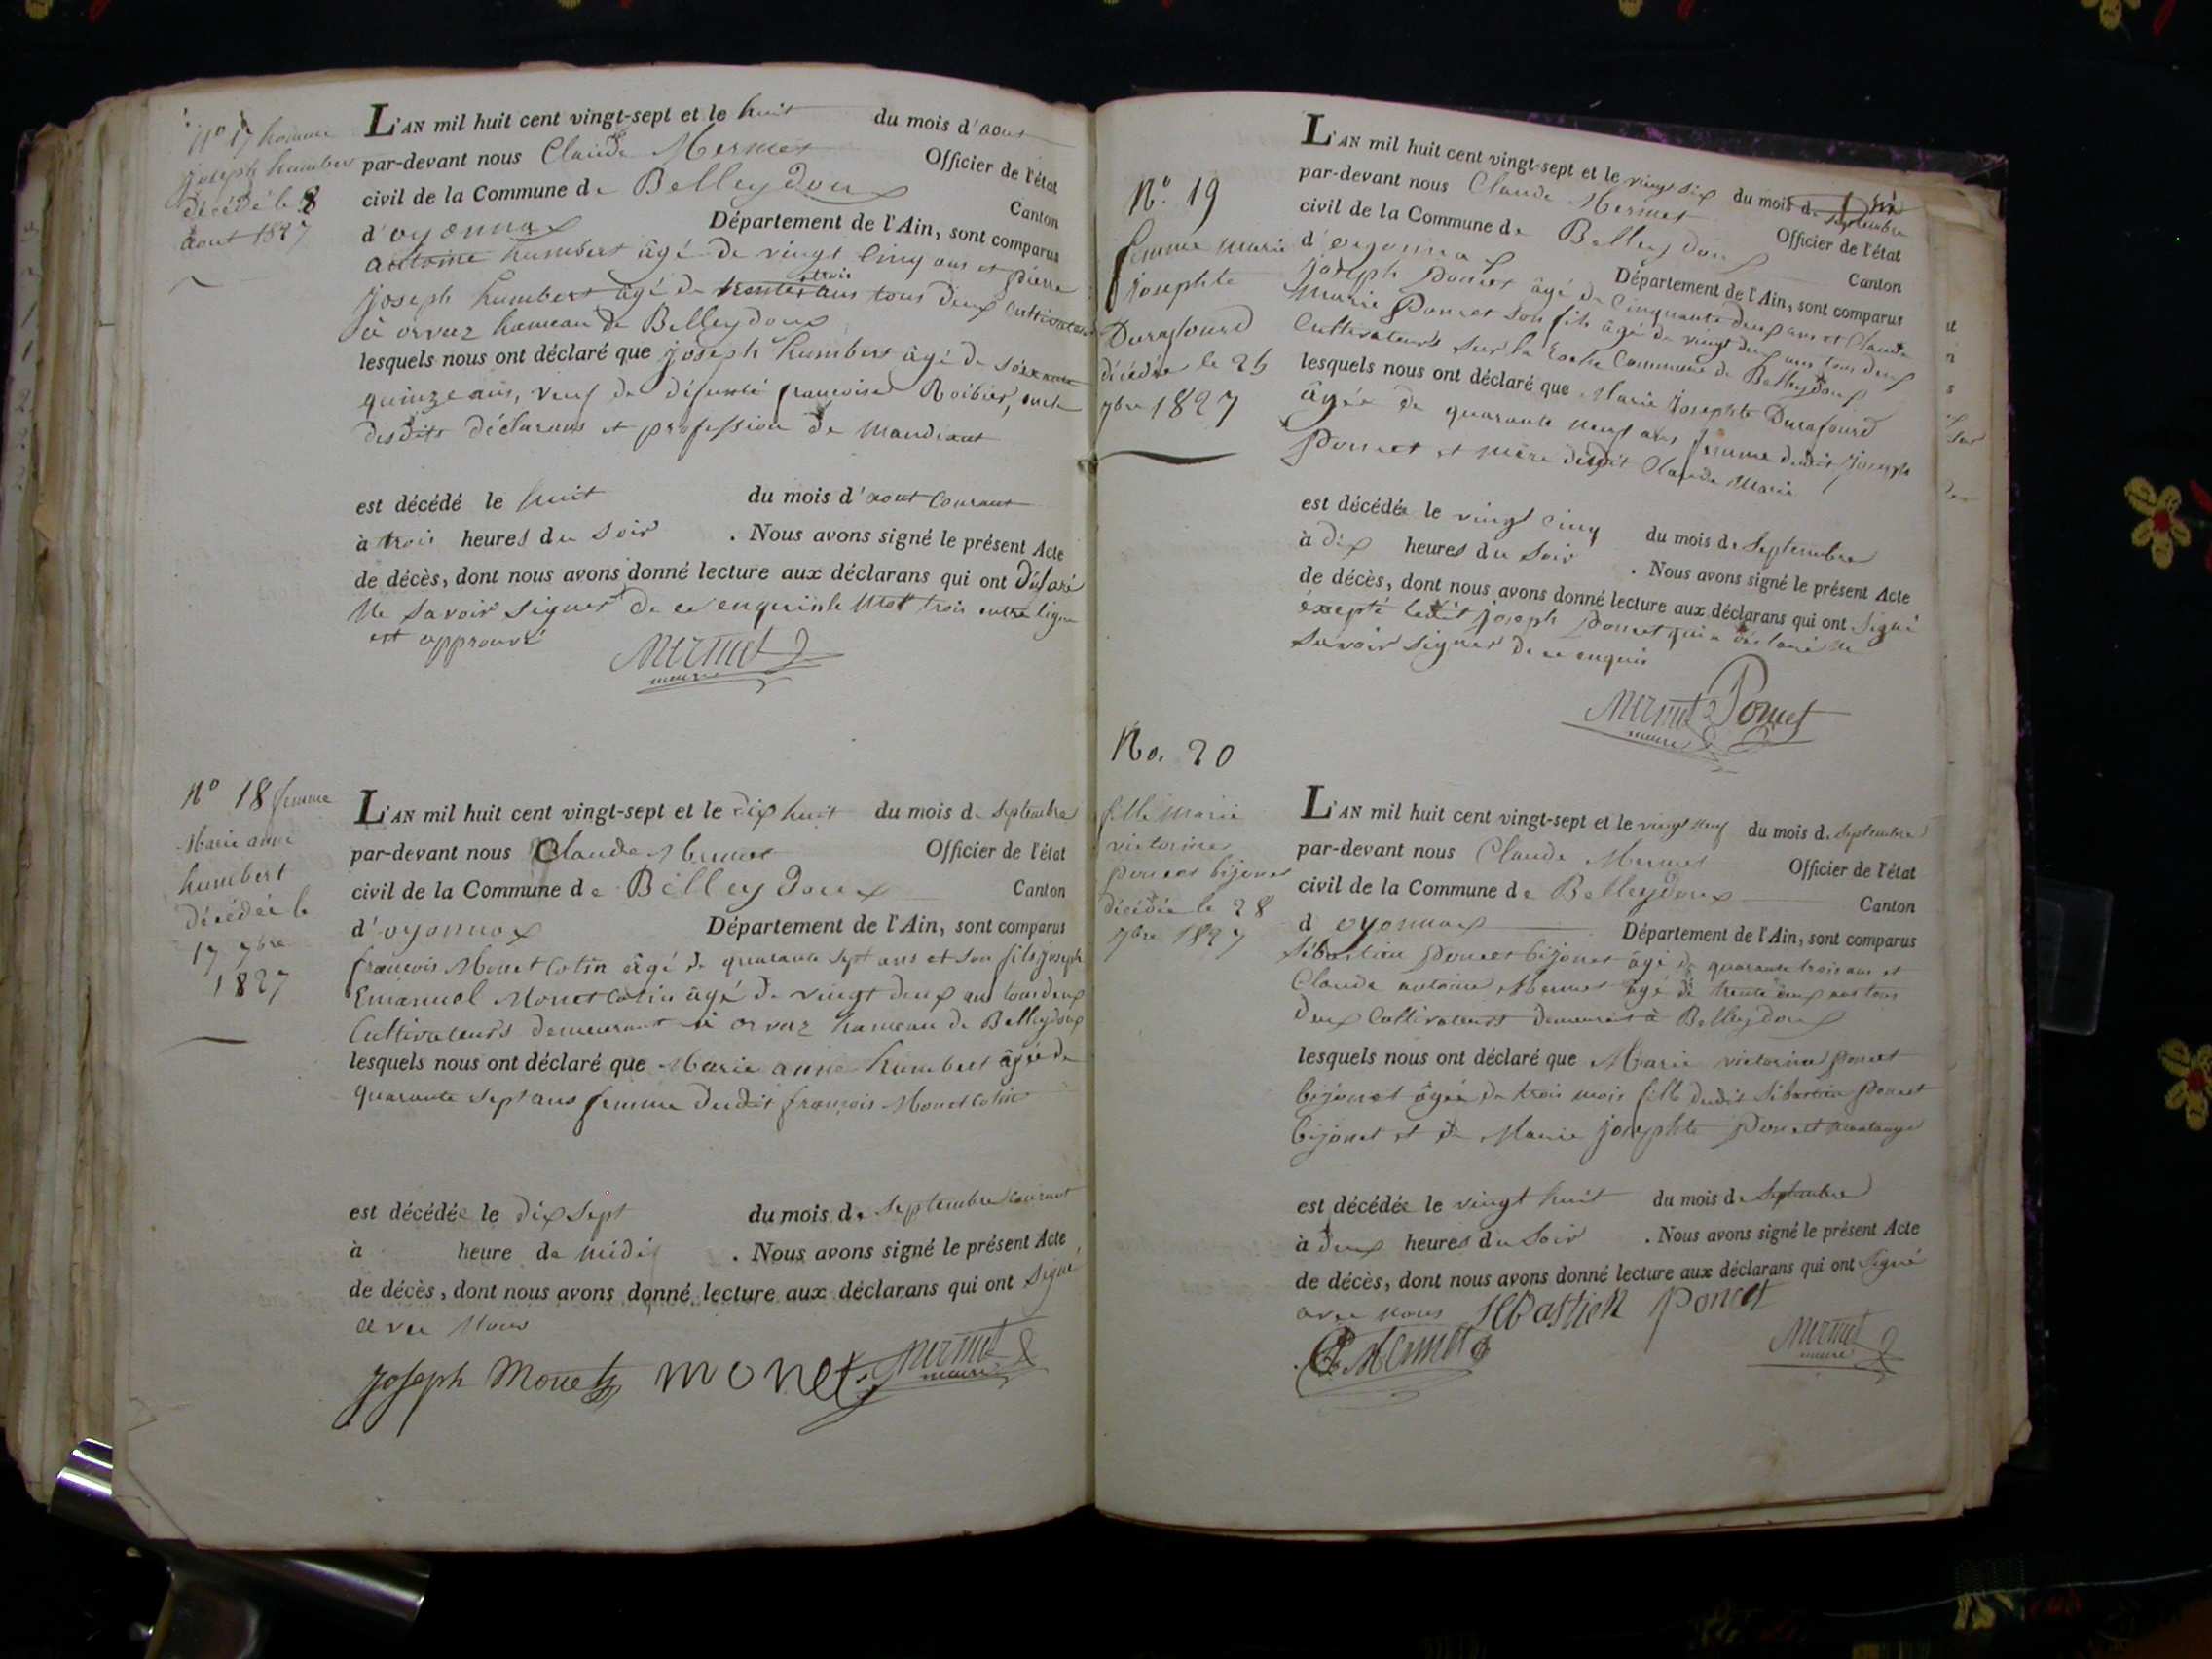 N° 17 homme
joseph humbert
décédé le 8
aout 1827
L'AN mil huit cent vingt-sept et le huit du mois d'aout
par-devant nous Claude Mermet Officier de l'état
civil de la Commune de Belleydoux Canton
d'oyonnax Département de l'Ain, sont comparus
antoine humbert âgé de vingt cinq ans et pierre
joseph humbert âgé de trente trois ans tous deux cultivateurs
à orvaz hameau de Belleydoux
lesquels nous ont déclaré que joseph humbert âgé de soixante
quinze ans, veuf de défunte françoise Roibier, oncle
desdits déclarans et profession de mandiant
est décédé le huit du mois d'aout courant
à trois heures du soir . Nous avons signé le présent Acte
de décès, dont nous avons donné lecture aux déclarans qui ont déclaré
ne savoir signer de ce enquis le mot trois entre ligne
est approuvé
Mermet
maire
N° 18 femme
Marie anne
humbert
décédée le
17 7bre
1827
L'AN mil huit cent vingt-sept et le dix huit du mois de septembre
par-devant nous Claude Mermet Officier de l'état
civil de la Commune de Belleydoux Canton
d'oyonnax Département de l'Ain, sont comparus
françois Monet Colin âgé de quarante sept ans et son fils joseph
Emanuel Monet Colin âgé de vingt deux ans tous deux
Cultivateurs demeurant à orvaz hameau de Belleydoux
lesquels nous ont déclaré que Marie anne humbert âgée de
quarante sept ans femme dudit françois Monet Colin
est décédée le dix sept du mois de septembre courant
à heure de midi . Nous avons signé le présent Acte
de décès, dont nous avons donné lecture aux déclarans qui ont signé
avec nous
joseph Monet monet Mermet
maire
N°. 19
femme marie
josephte
Durafourd
décédée le 25
7bre 1827
L'AN mil huit cent vingt-sept et le vingt six du mois de septembre
par-devant nous Claude Mermet Officier de l'état
civil de la Commune de Belleydoux Canton
d'oyonnax Département de l'Ain, sont comparus
joseph Poncet âgé de Cinquante deux ans et Claude
Marie Poncet son fils âgé de vingt deux ans tous deux
Cultivateurs sur la Roche Commune de Belleydoux
lesquels nous ont déclaré que Marie Josephte Durafourd
âgée de quarante neuf ans femme dudit Joseph
Poncet et mère dudit Claude Marie
est décédée le vingt cinq du mois de Septembre
à dix heures du soir . Nous avons signé le présent Acte
de décès, dont nous avons donné lecture aux déclarans qui ont signé
éxcepté ledit joseph Poncet qui a déclaré ne
savoir signer de ce enquis
Mermet Poncet
maire
No. 20
fille Marie
victorine
poncet bijonet
décédée le 28
7bre 1827
L'AN mil huit cent vingt-sept et le vingt neuf du mois de septembre
par-devant nous Claude Mermet Officier de l'état
civil de la Commune de Belleydoux Canton
d oyonnax Département de l'Ain, sont comparus
sébastien poncet bijonet âgé de quarante trois ans et
Claude antoine Mermet âgé de trente deux ans tous
deux Cultivateurs demeurant à Belleydoux
lesquels nous ont déclaré que Marie victorine poncet
bijonet âgée de trois mois fille dudit Sébastien poncet
bijonet et de Marie josephte Poncet montange
est décédée le vingt huit du mois de Septembre
à deux heures du soir . Nous avons signé le présent Acte
de décès, dont nous avons donné lecture aux déclarans qui ont signé
avec nous sébastien poncet
Mermet Mermet
maire